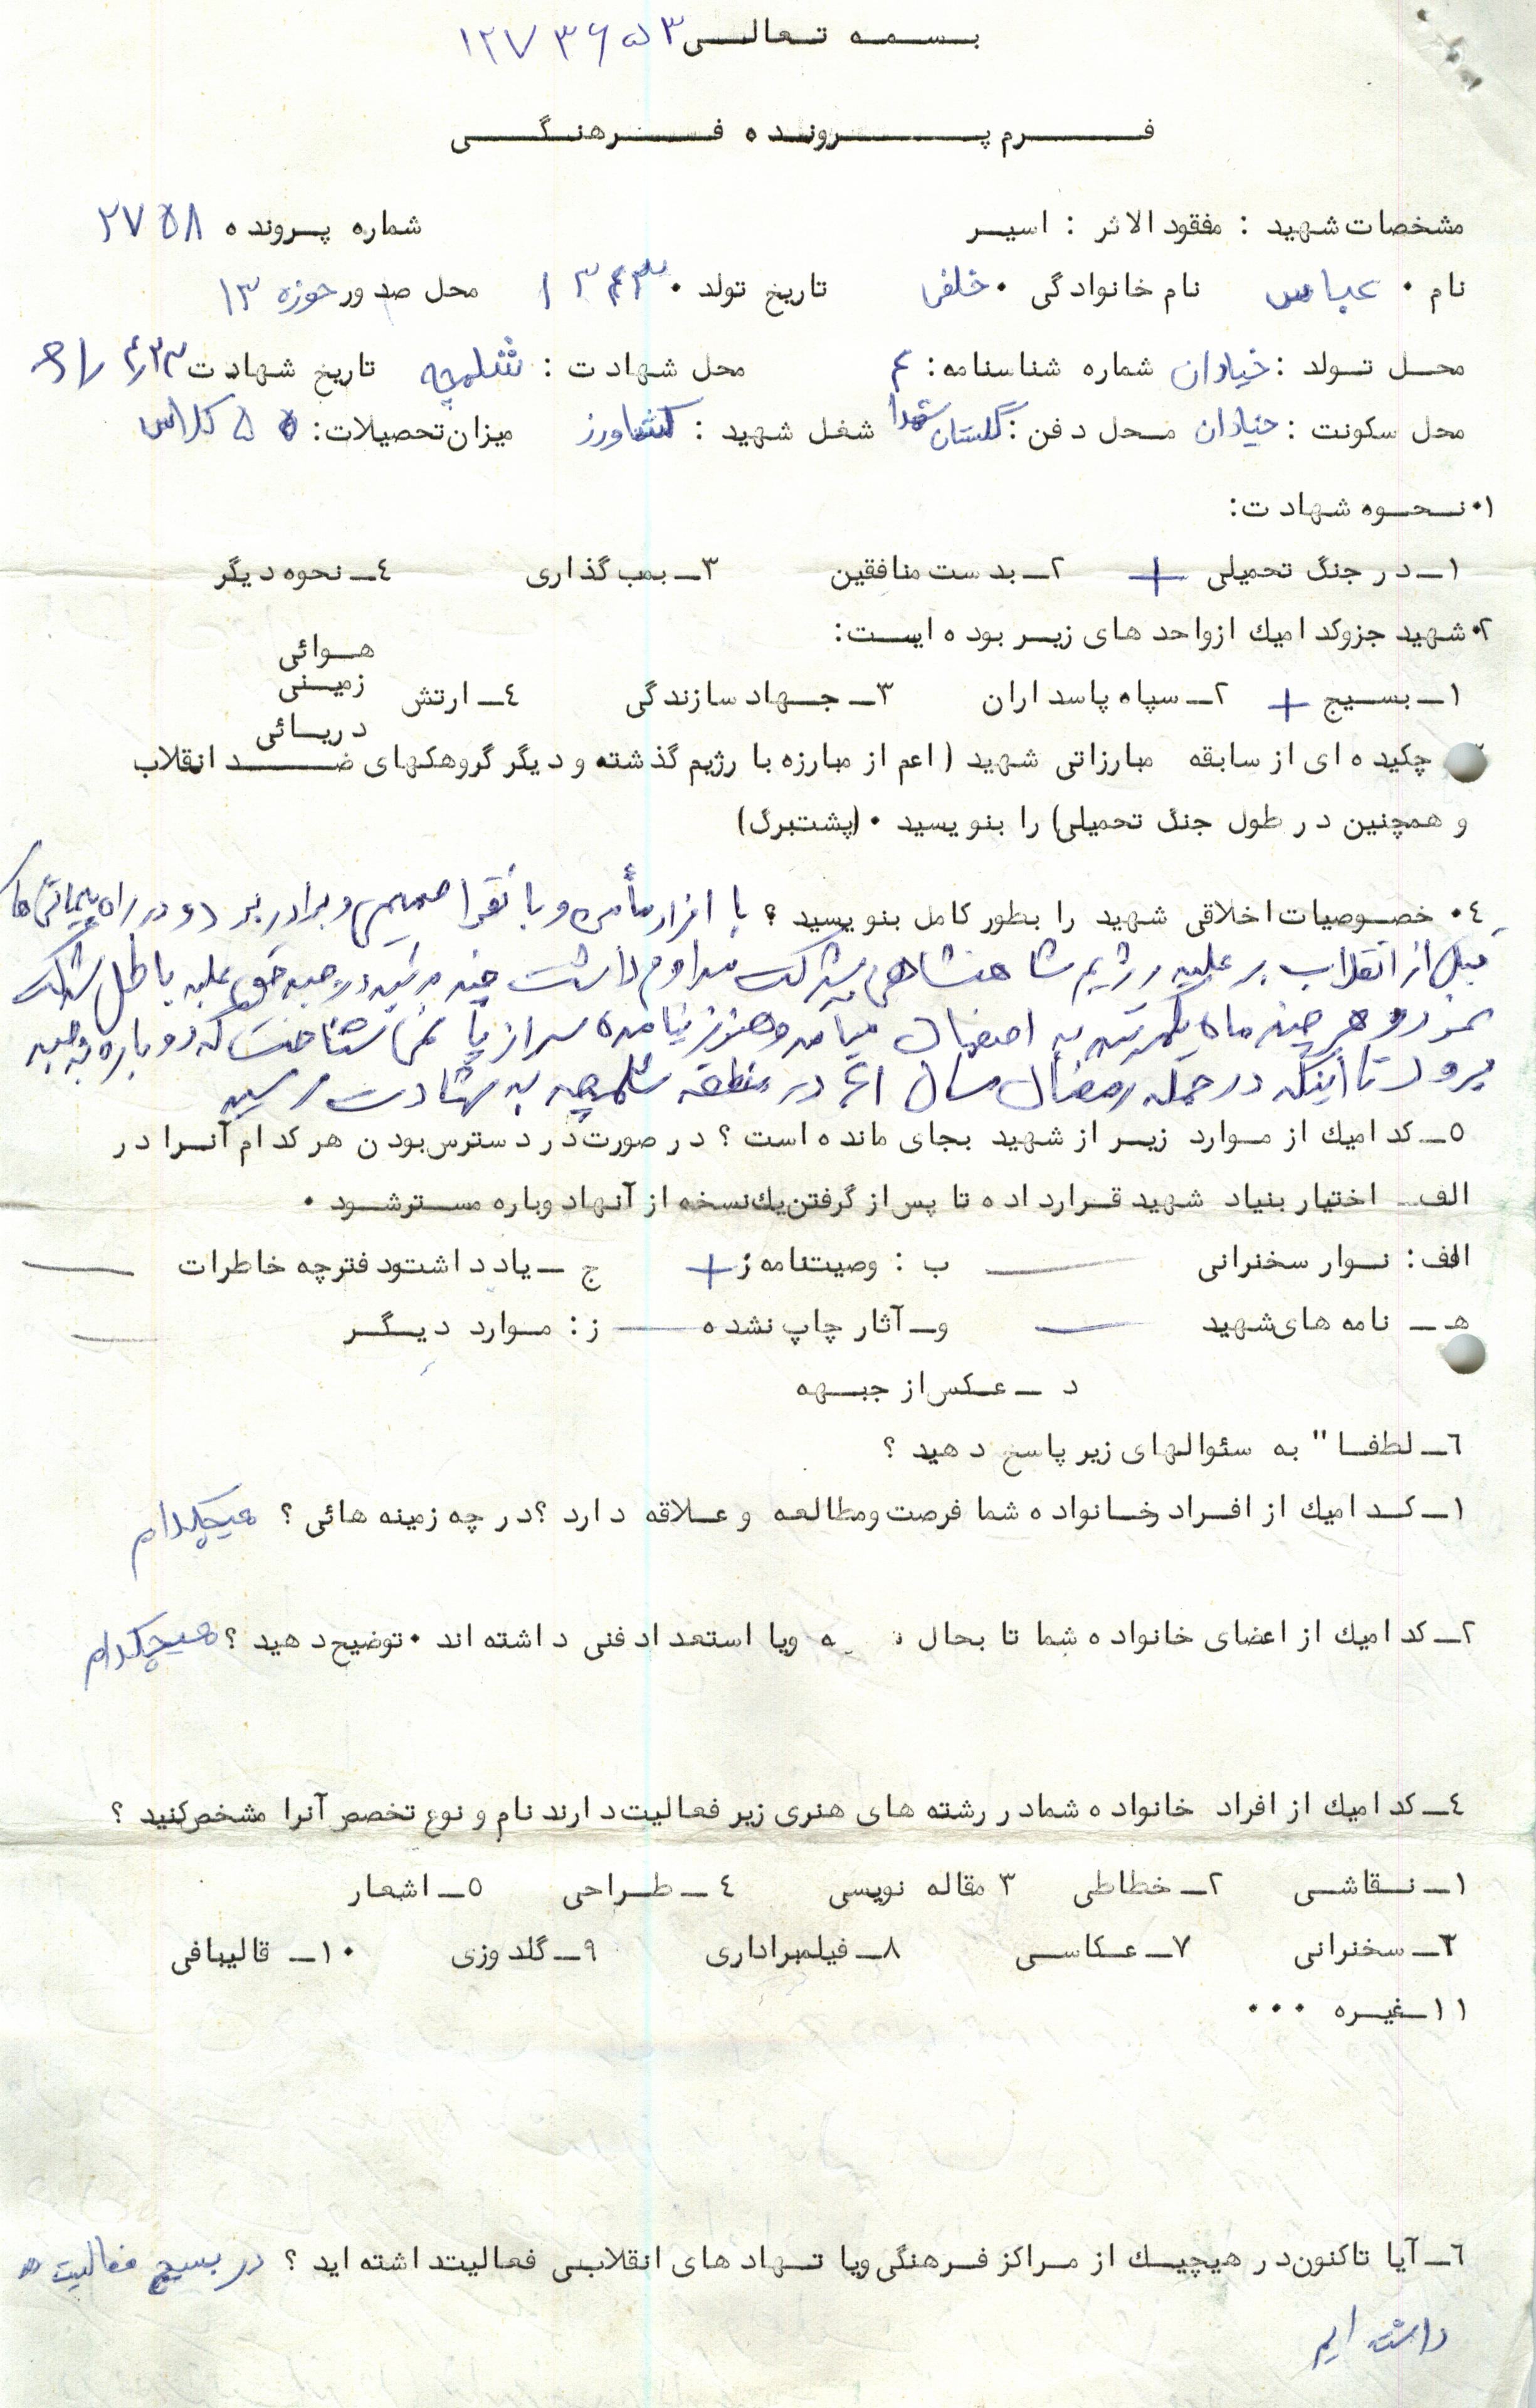 بسمه تعالی ۱۲۷۳۶۵۳
فرم پرونده فرهنگی
مشخصات شهید : مفقود الاثر : اسیر شماره پرونده ۲۷۵۸
نام . عباس نام خانوادگی . خلفی تاریخ تولد . ۱۳۴۳ محل صدور حوزه ۱۳
محل تولد : خیادان شماره شناسنامه : ۴ محل شهادت : شلمچه تاریخ شهادت ۶۱/۴/۲۳
محل سکونت : خیادان محل دفن : گلستان شهدا شغل شهید : کشاورز میزان تحصیلات : ۵ کلاس
۱. نحوه شهادت:
۱ـ در جنگ تحمیلی + ۲ـ بدست منافقین ۳ـ بمب گذاری ٤ـ نحوه دیگر
۲. شهید جزو کدامیك ازواحدهای زیر بوده است:
۱ـ بسیج + ۲ـ سپاه پاسداران ۳ـ جهاد سازندگی ٤ـ ارتش هوائی زمینی دریائی
چکیده ای از سابقه مبارزاتی شهید (اعم از مبارزه با رژیم گذشته و دیگر گروهکهای ضد انقلاب
و همچنین در طول جنگ تحمیلی) را بنویسید . (پشتبرگ)
٤. خصوصیات اخلاقی شهید را بطور کامل بنویسید ؟ با افراد و با فقرا صمیمی و برادر بود و در راه پیمائی ها
قبل از انقلاب بر علیه رژیم شاهنشاهی شرکت مداوم داشت چند مرتبه در جبهه حق علیه باطل شرکت
نمود و هر چند ماه یکمرتبه به اصفهان میآمد و هنوز نیامده سر از پا نمی شناخت که دوباره به جبهه
برود تا اینکه در حمله رمضان سال ۶۱ در منطقه شلمچه به شهادت رسید
٥ـ کدامیك از موارد زیر از شهید بجای مانده است ؟ در صورت در دسترس بودن هر کدام آنرا در
الف ـ اختیار بنیاد شهید قرار داده تا پس از گرفتن یك نسخه از آنها دوباره مسترشود .
الف : نوار سخنرانی — ب : وصیتنامه ز + ج ـ یادداشت ودفترچه خاطرات —
هـ ـ نامه های شهید — و ـ آثار چاپ نشده — ز : موارد دیگر —
د ـ عکس از جبهه
٦ـ لطفا " به سئوالهای زیر پاسخ دهید ؟
۱ـ کدامیك از افراد خانواده شما فرصت ومطالعه و علاقه دارد ؟ در چه زمینه هائی ؟ هیچکدام
۲ـ کدامیك از اعضای خانواده شما تا بحال ویا استعداد فنی داشته اند . توضیح دهید ؟ هیچکدام
٤ـ کدامیك از افراد خانواده شمادر رشته های هنری زیر فعالیت دارند نام و نوع تخصص آنرا مشخص کنید ؟
۱ـ نقاشی ۲ـ خطاطی ۳ مقاله نویسی ٤ـ طراحی ٥ـ اشعار
٦ـ سخنرانی ۷ـ عکاسی ۸ـ فیلمبراداری ۹ـ گلدوزی ۱۰ـ قالیبافی
۱۱ـ غیره ...
٦ـ آیا تاکنون در هیچیك از مراکز فرهنگی ویا نهادهای انقلابی فعالیتداشته اید ؟ در بسیج فعالیت
داشته ایم